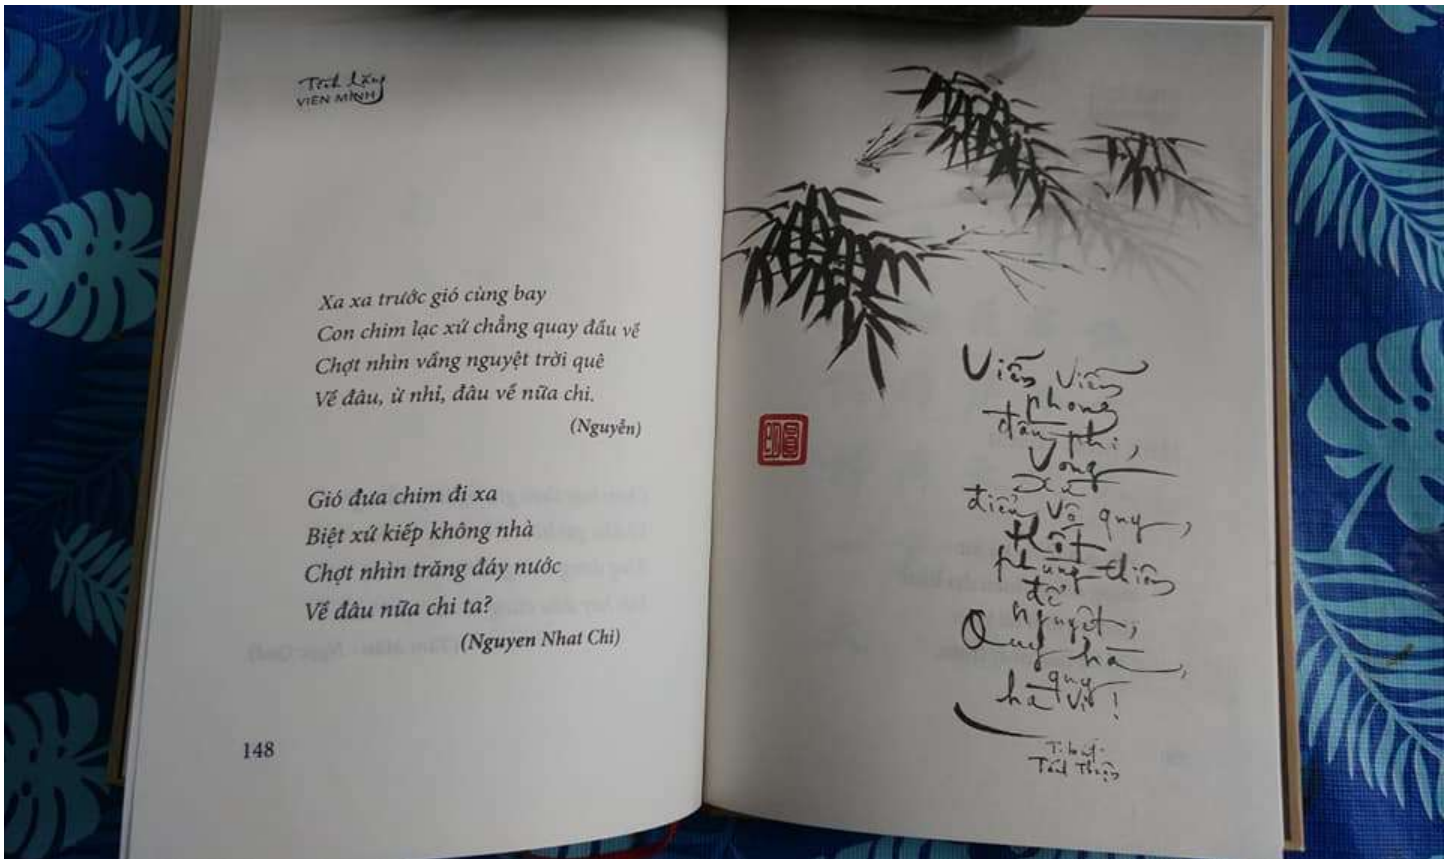 Tĩnh lặng
VIÊN MINH
Xa xa trước gió cùng bay
Con chim lạc xứ chẳng quay đầu về
Chợt nhìn vầng nguyệt trời quê
Về đâu, ừ nhỉ, đâu về nữa chi.
(Nguyễn)
Gió đưa chim đi xa
Biệt xứ kiếp không nhà
Chợt nhìn trăng đáy nước
Về đâu nữa chi ta?
(Nguyen Nhat Chi)
148
Viễn Viễn
phong
đầu phi,
Vong
xứ
điểu vô quy,
Hốt
phùng thiên
để
nguyệt,
Quy hà,
quy
hà vi!
圓